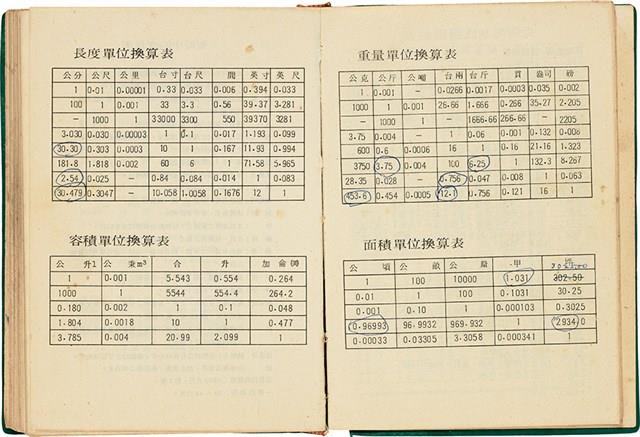 長度單位換算表
公分 公尺 公里 台寸 台尺 間 英寸 英尺
1 0.01 0.00001 0.33 0.033 0.006 0.394 0.033
100 1 0.001 33 3.3 0.56 39.37 3.281
— 1000 1 33000 3300 550 39370 3281
3.030 0.030 0.00003 1 0.1 0.017 1.193 0.099
30.30 0.303 0.0003 10 1 0.167 11.93 0.994
181.8 1.818 0.002 60 6 1 71.58 5.965
2.54 0.025 — 0.84 0.084 0.014 1 0.083
30.479 0.3047 — 10.058 1.0058 0.1676 12 1
容積單位換算表
公升l 公秉m³ 合 升 加侖
1 0.001 5.543 0.554 0.264
1000 1 5544 554.4 264.2
0.180 0.002 1 0.1 0.048
1.804 0.0018 10 1 0.477
3.785 0.004 20.99 2.099 1
重量單位換算表
公克 公斤 公噸 台兩 台斤 貫 盎司 磅
1 0.001 — 0.0266 0.0017 0.0003 0.035 0.002
1000 1 0.001 26.66 1.666 0.266 35.27 2.205
— 1000 1 — 1666.66 266.66 — 2205
3.75 0.004 — 1 0.06 0.001 0.132 0.008
600 0.6 0.0006 16 1 0.16 21.16 1.323
3750 3.75 0.004 100 6.25 1 132.3 8.267
28.35 0.028 — 0.756 0.047 0.008 1 0.063
453.6 0.454 0.0005 12.1 0.756 0.121 16 1
面積單位換算表
公頃 公畝 公 甲
1 100 10000 1.031 302.50
0.01 1 100 0.1031 30.25
0.001 0.10 1 0.000103 0.3025
0.96993 96.9932 969.932 1 29340
0.00033 0.03305 3.3058 0.000341 1